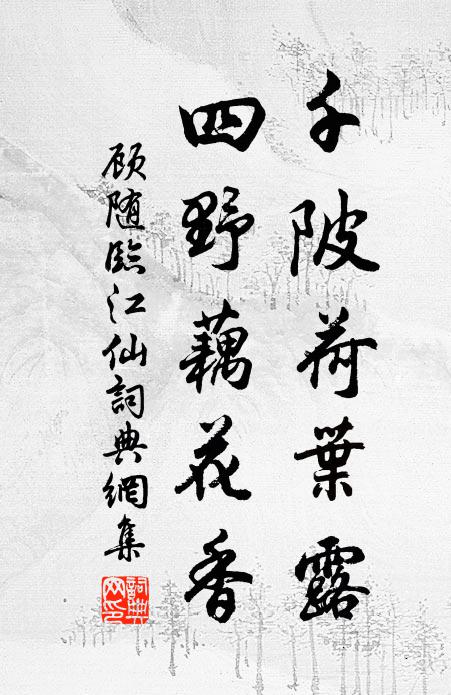 千陂荷葉露
四野藕花香
顾随臨江仙詞典網集
詞典網印